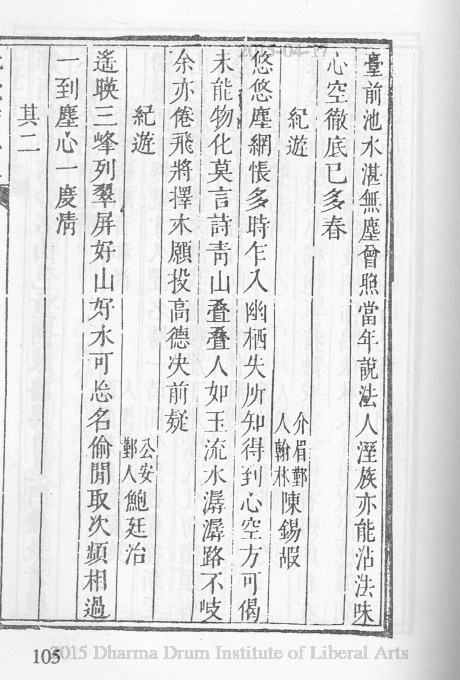 臺前池水湛無塵曾照當年說法人溼族亦能沾法味
心空徹底已多春
紀遊 介眉鄞人翰林陳錫嘏
悠悠塵網悵多時乍入幽栖失所知得到心空方可偈
未能物化莫言詩青山疊疊人如玉流水潺潺路不岐
余亦倦飛將擇木願投高德决前疑
紀遊 公安鄞人鮑廷治
遙映三峰列翠屏好山好水可怡名偷閒取次頻相過
一到塵心一度清
其二
105
2015-04-17
2015 Dharma Drum Institute of Liberal Arts